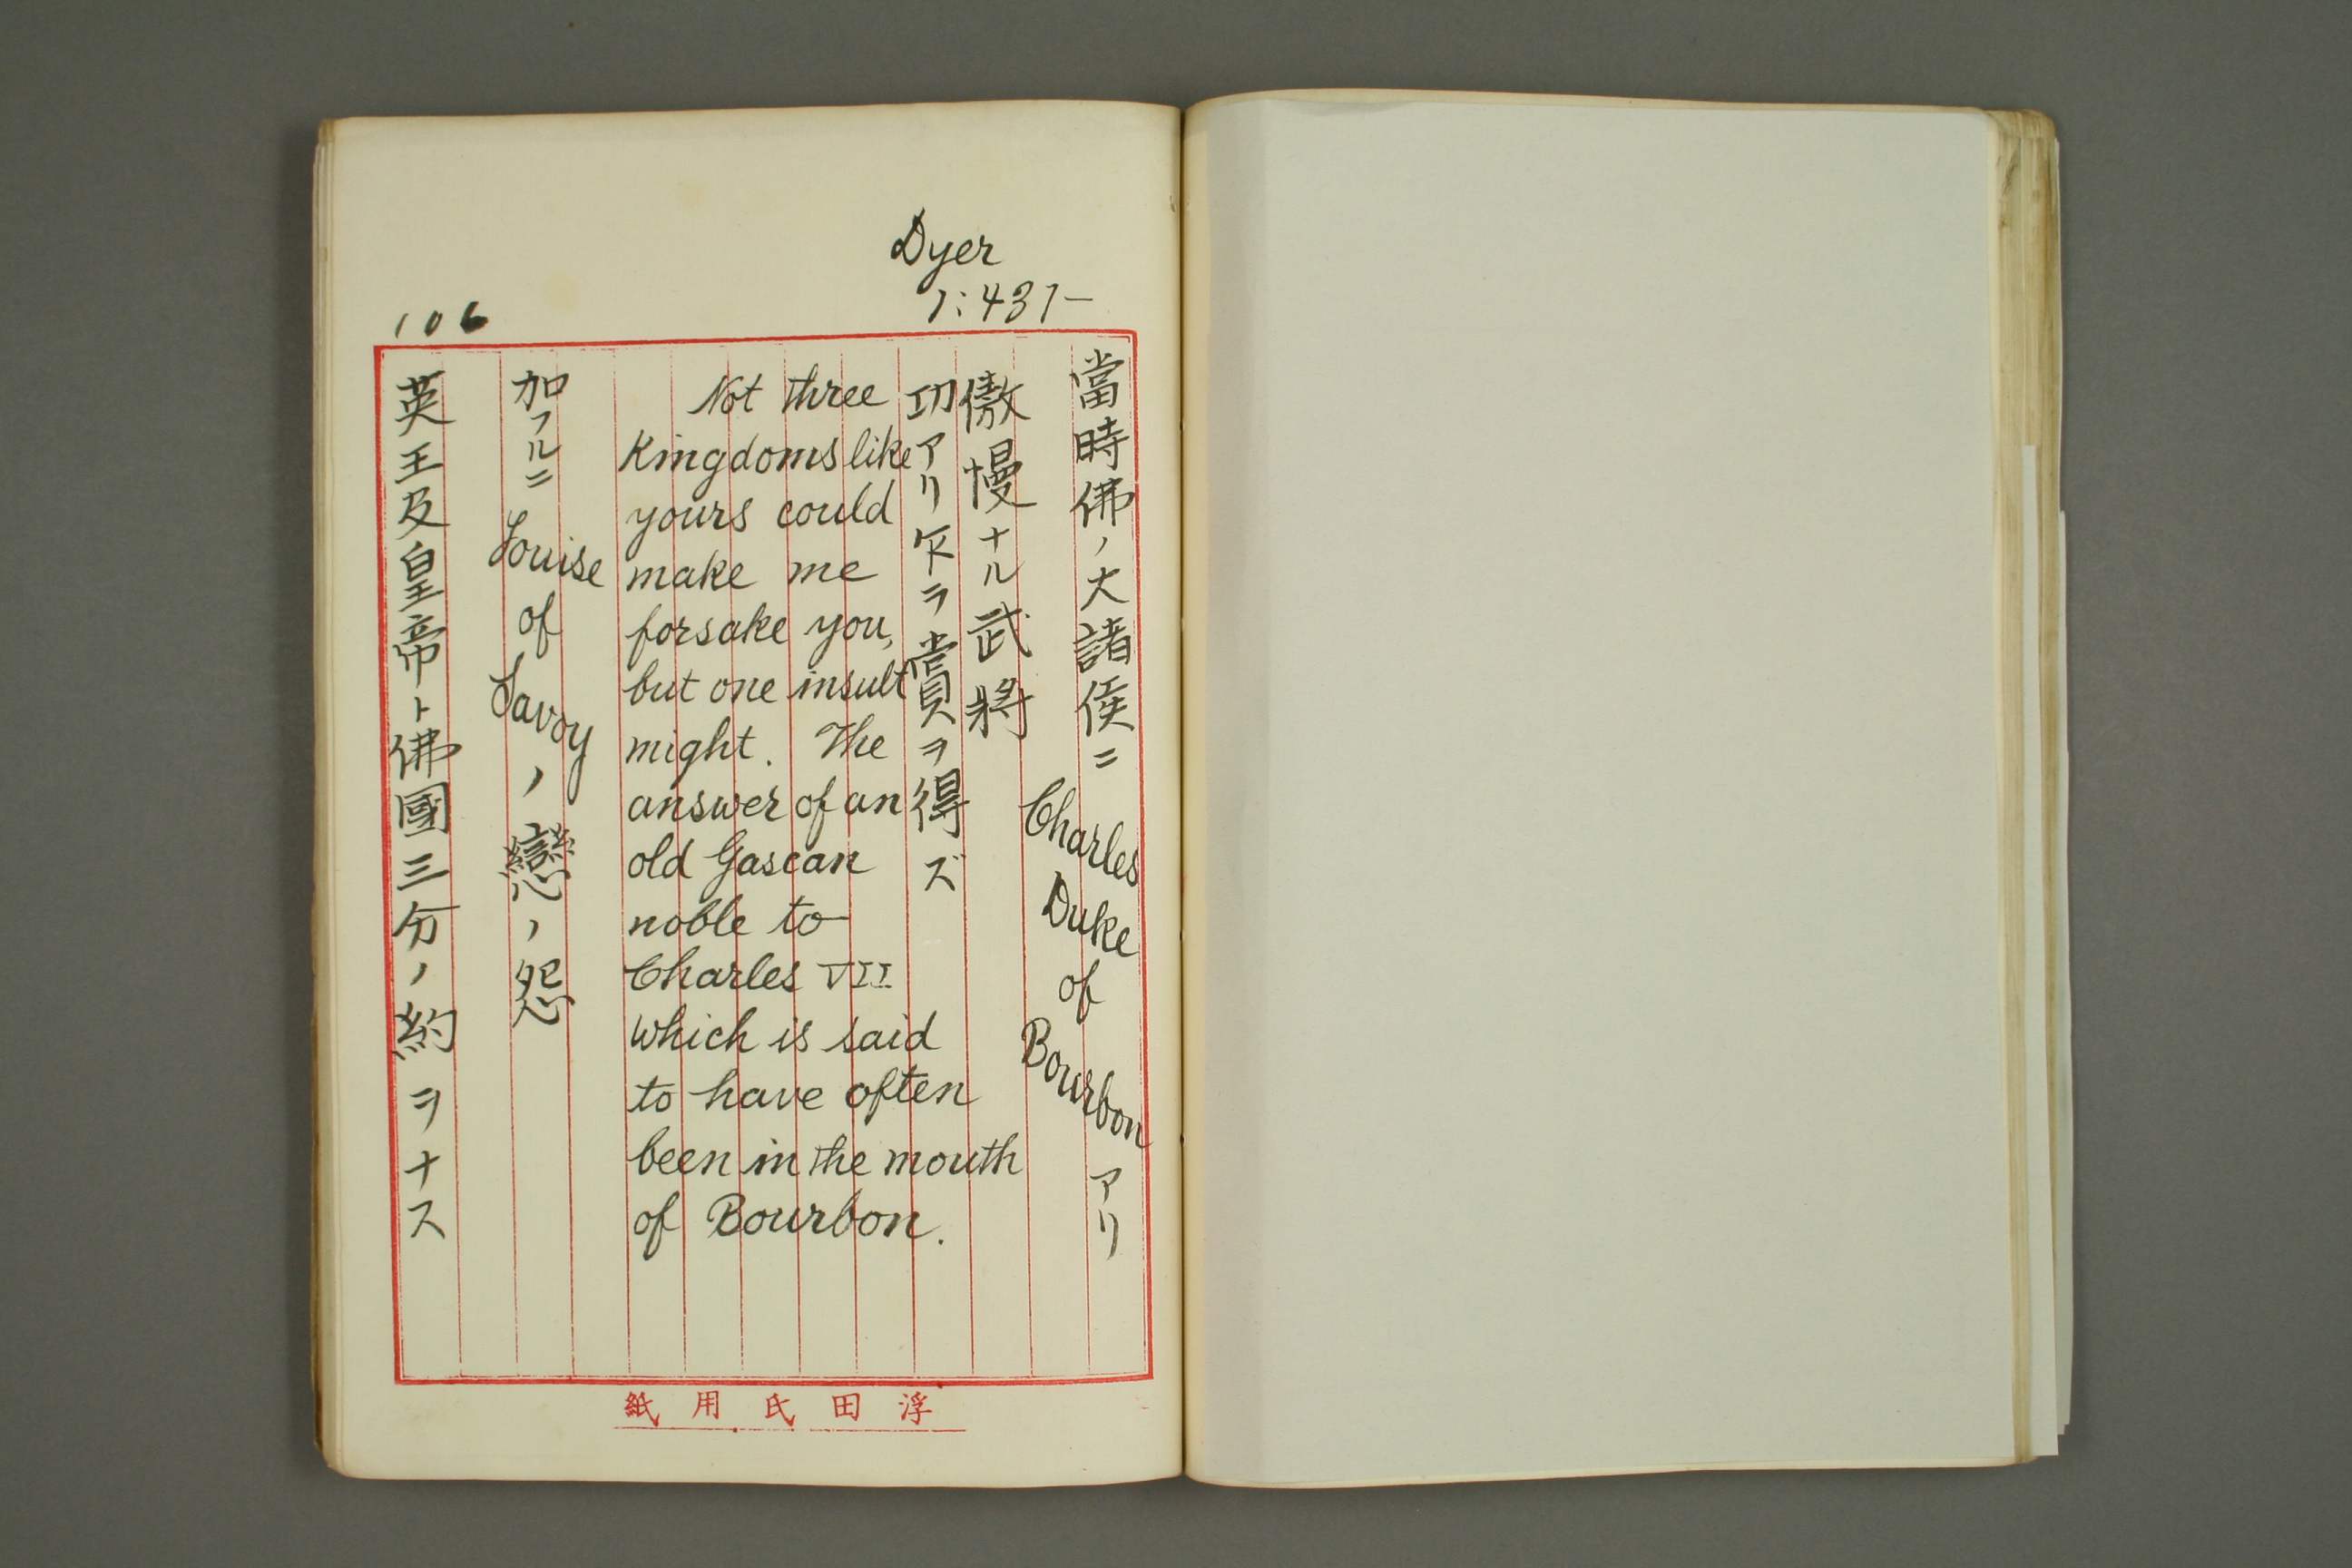 Dyer
1:431-
106
當時佛ノ大諸侯ニ Charles Duke of Bourbon アリ
傲慢ナル武將
功アリ乍ラ賞ヲ得ズ
Not three
Kingdoms like
yours could
make me
forsake you,
but one insult
might. The
answer of an
old Gascan
noble to
Charles VII
which is said
to have often
been in the mouth
of Bourbon.
加フルニ Louise of Savoy ノ戀ノ怨
英王及皇帝ト佛國三分ノ約ヲナス
浮田氏用紙